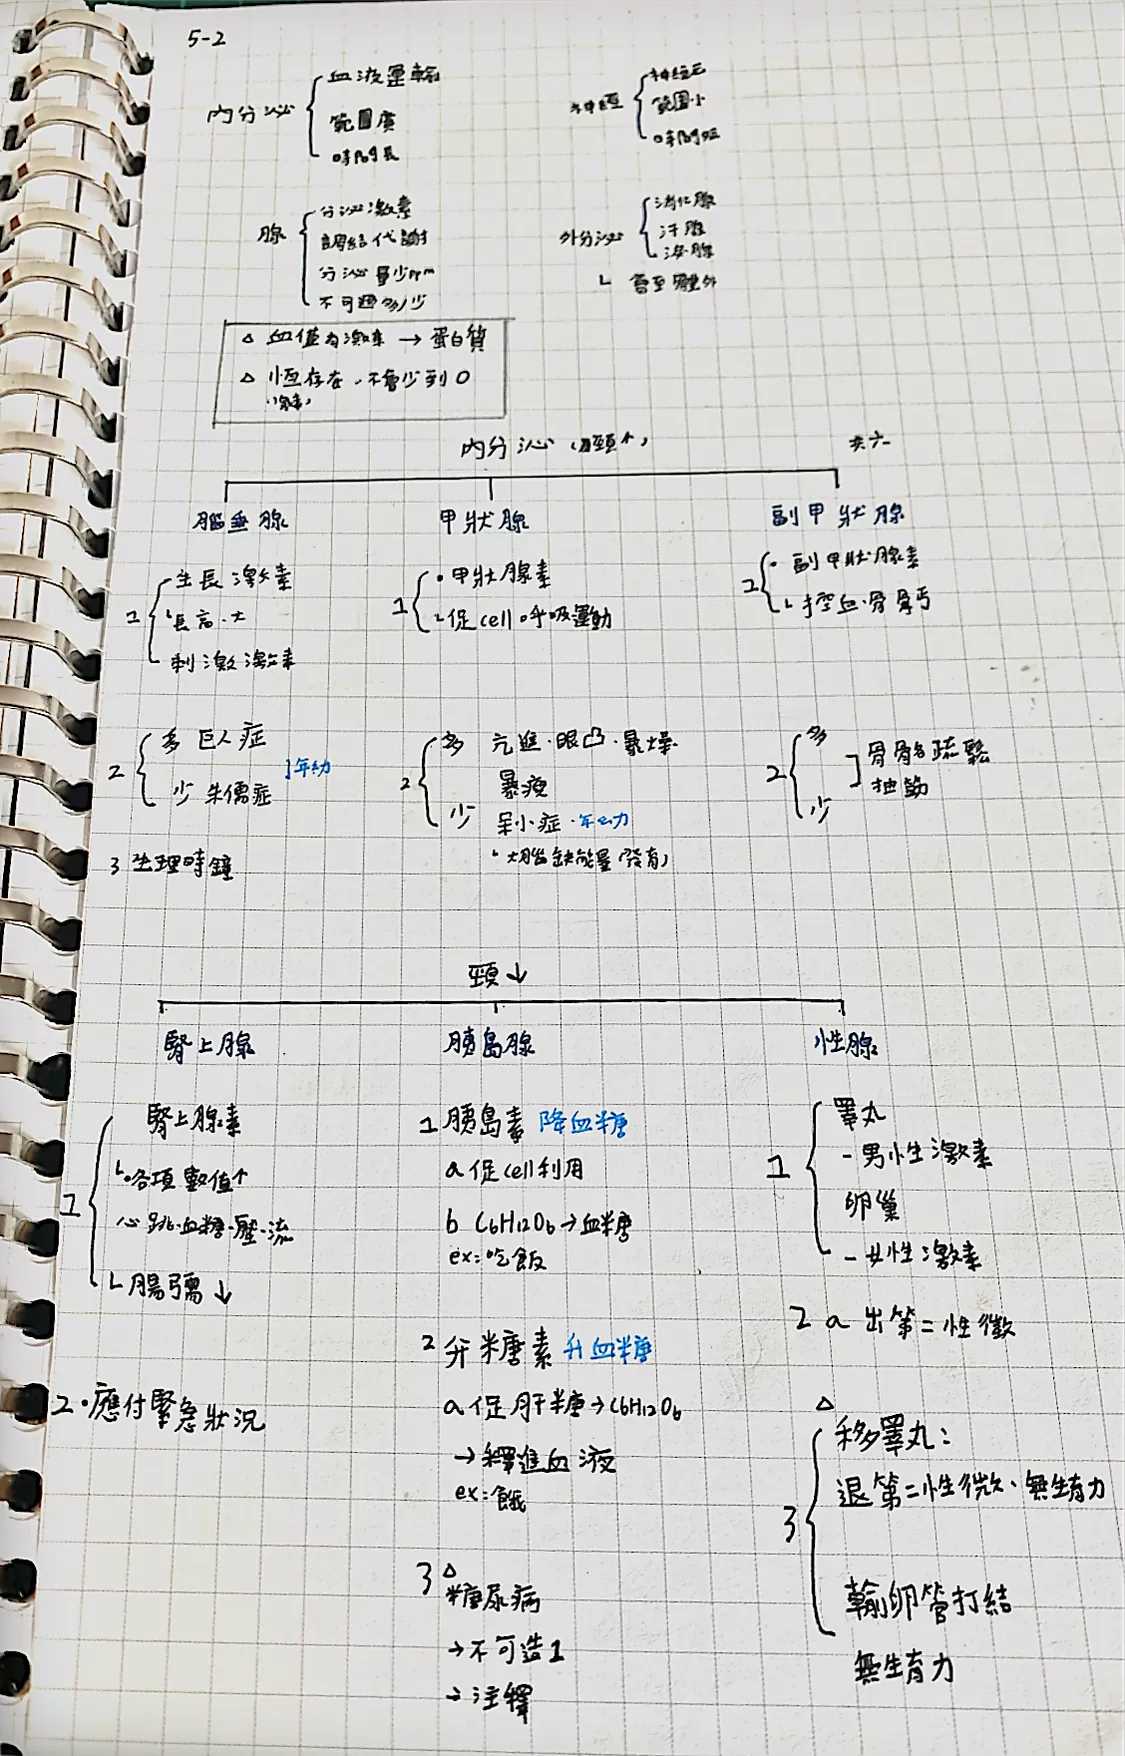 5-2
內分泌
血液運輸
範圍廣
時間長
神經
神經元
範圍小
時間短
腺
分泌激素
調節代謝
分泌量少ppm
不可過多/少
外分泌
消化腺
汗腺
淚腺
└ 管至體外
△ 血僅為激素 → 蛋白質
△ 恆存在,不會少到0
(激素)
內分泌 (頸↑)
共六
腦垂腺
1
生長激素
└長高.大
刺激激素
2
多 巨人症
少 朱儒症
]年幼
3 生理時鐘
甲狀腺
1
•甲狀腺素
└促cell呼吸運動
2
多 亢進.眼凸.暴燥.
暴瘦
少 呆小症.年幼
└大腦缺能量(發育)
副甲狀腺
1
• 副甲狀腺素
└控血.骨骼鈣
2
多
少
]骨骼疏鬆
抽筋
頸↓
腎上腺
1
腎上腺素
└•各項數值↑
心跳.血糖.壓.流
└腸弱↓
2 •應付緊急狀況
胰島腺
1 胰島素 降血糖
a 促cell利用
b C6H12O6→血糖
ex:吃飯
2 升糖素 升血糖
a 促肝糖→C6H12O6
→釋進血液
ex:餓
3 △
糖尿病
→不可造1
→注釋
性腺
1
睪丸
-男性激素
卵巢
-女性激素
2 a 出第二性徵
△
3
移睪丸:
退第二性徵.無生育力
輸卵管打結
無生育力